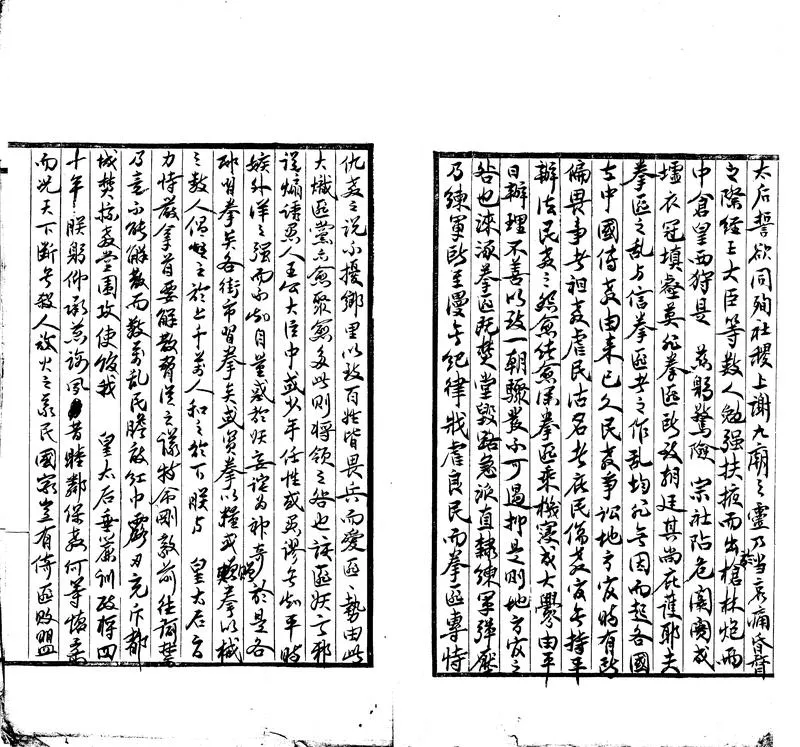 太后誓欲同殉社稷上謝九廟之靈乃當哀痛昏瞀
之際經王大臣等數人勉强扶掖而出槍林炮雨
中倉皇西狩是 慈躬驚險 宗社阽危闤闠成
墟衣冠填壑莫非拳匪所致朝廷其尚庇護耶夫
拳匪之乱与信拳匪者之作乱均非无因而起各國
在中國傳教由來已久民教爭訟地方官時有所
偏畏事者袒教虐民沽名者庇民傷教官无持平
辦法民教之怨愈結愈深拳匪乘機寖成大釁由平
日辦理不善以致一朝驟發不可遏抑是則地方官之
咎也淶涿拳匪既焚堂毀路急派直隸練軍彈壓
乃練軍所至漫无紀律戕虐良民而拳匪專恃
仇教之説不擾鄉里以致百姓皆畏兵而愛匪匪勢由此
大熾匪黨亦愈聚愈多此則將領之咎也该匪妖言邪
説煽誘愚人王公大臣中或少年任性或迂謬无知平時
嫉外洋之强而不知自量惑於妖妄詫为神奇於是各
邸習拳矣各街市習拳矣或資拳以糧或贈拳以械
三数人倡之於上千万人和之於下朕与 皇太后方
力持嚴拿首要解散脅從之議特命剛毅前往諭禁
乃竟不能解散而数万乱民膽敢紅巾露刃充斥都
城焚掠教堂圍攻使館我 皇太后垂簾訓政將四
十年朕躬仰承慈誨夙昔睦鄰保教何等懷柔
而况天下断无殺人放火之義民國家豈有倚匪敗盟